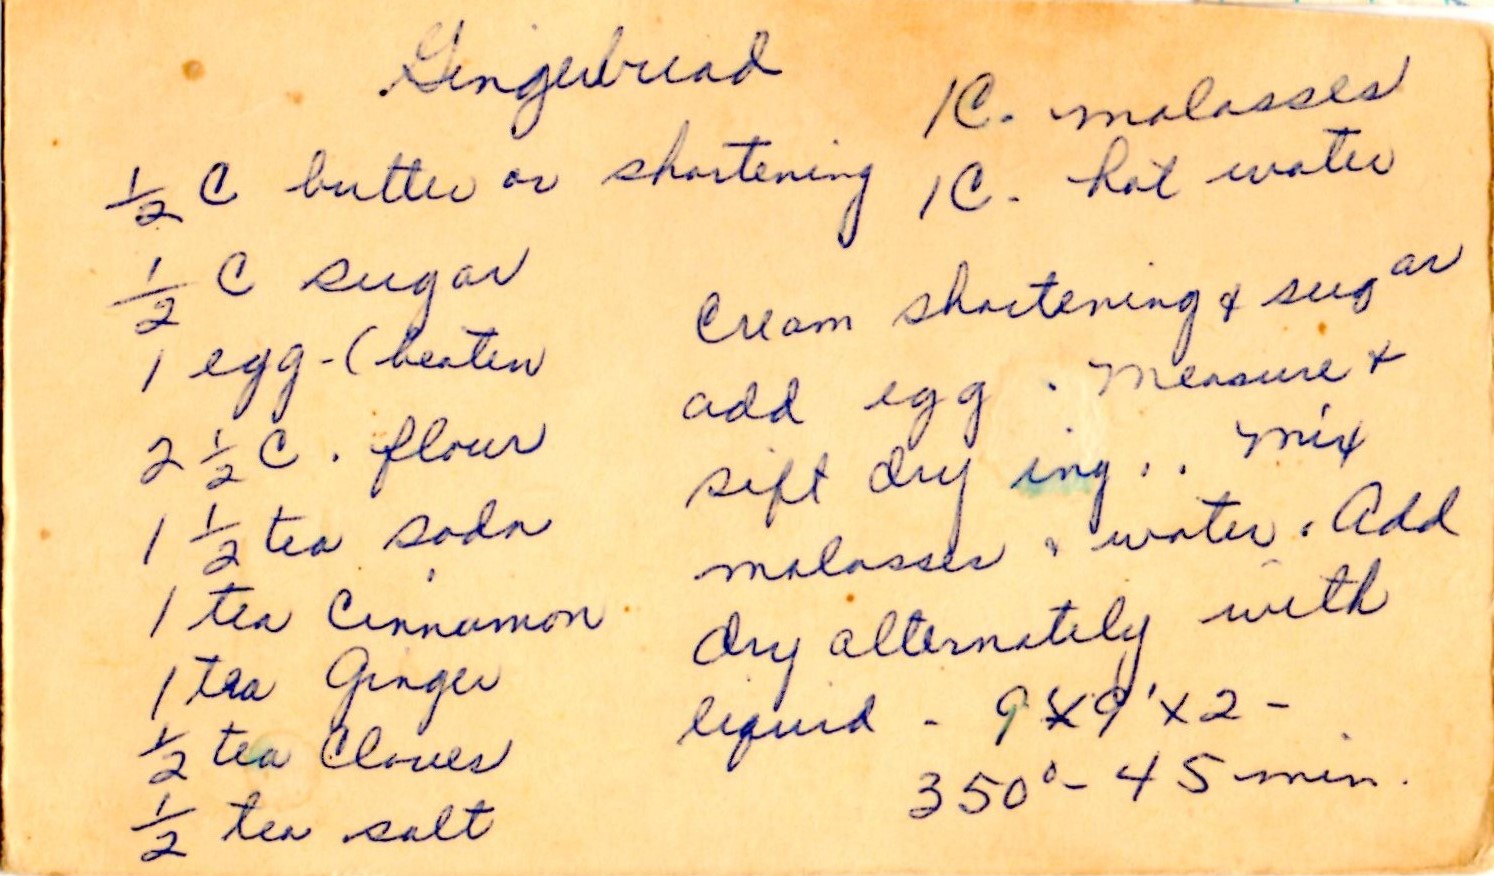 Gingerbread
½ C butter or shortening
½ C sugar
1 egg - (beaten
2 ½ C. flour
1 ½ tea soda
1 tea Cinnamon
1 tea Ginger
½ tea Cloves
½ tea salt
1C. molasses
1C. hot water
Cream shortening & sugar
add egg. Measure &
sift dry ing.. Mix
molasses & water. Add
dry alternately with
liquid - 9 x 9 x 2 -
350° - 45 min.